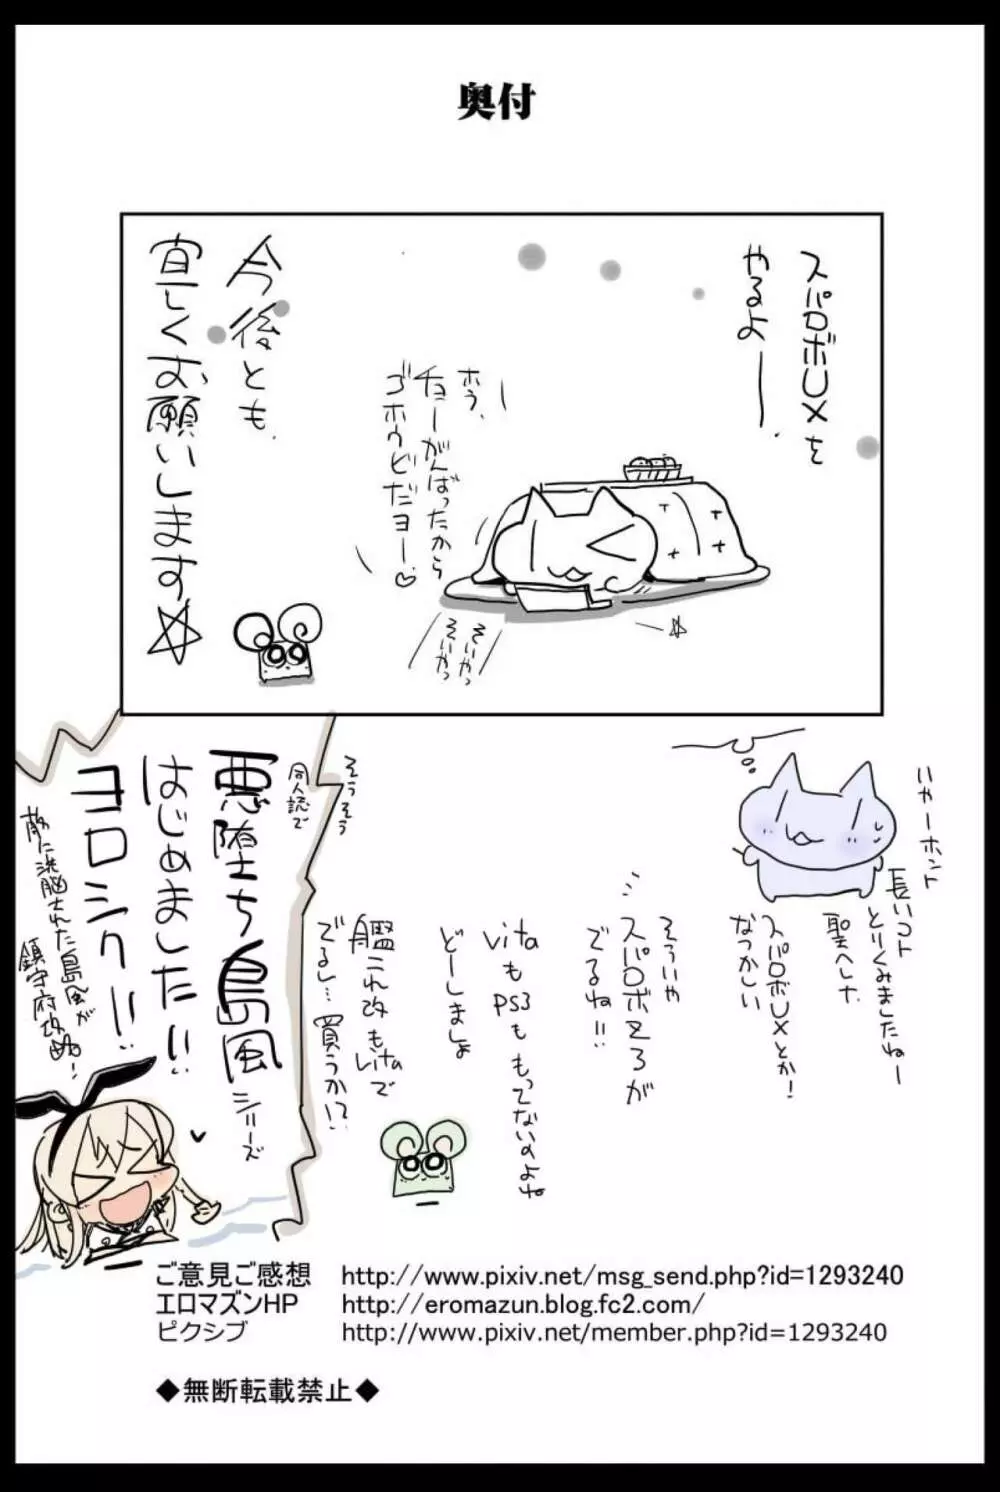 奥付
スパロボUXを
やるよー
ホラ、
チョーがんばったから
ゴホウビだヨー♡
そいやっ
そいやっ
今後とも、
宜しくお願いします☆
いやーホント
長いコト
とりくみましたねー
スパロボUXとか!
なつかしい
そういや
スパロボZ3が
でるね!!
vitaもPS3ももってないのよね
どーしましょ
艦これ改もvitaで
でるし…買うか!?
そうそう
同人誌で
悪堕ち島風シリーズ
はじめました!!
ヨロシク!!
敵に洗脳された島風が
鎮守府攻略!
ご意見ご感想 http://www.pixiv.net/msg_send.php?id=1293240
エロマズンHP http://eromazun.blog.fc2.com/
ピクシブ http://www.pixiv.net/member.php?id=1293240
◆無断転載禁止◆